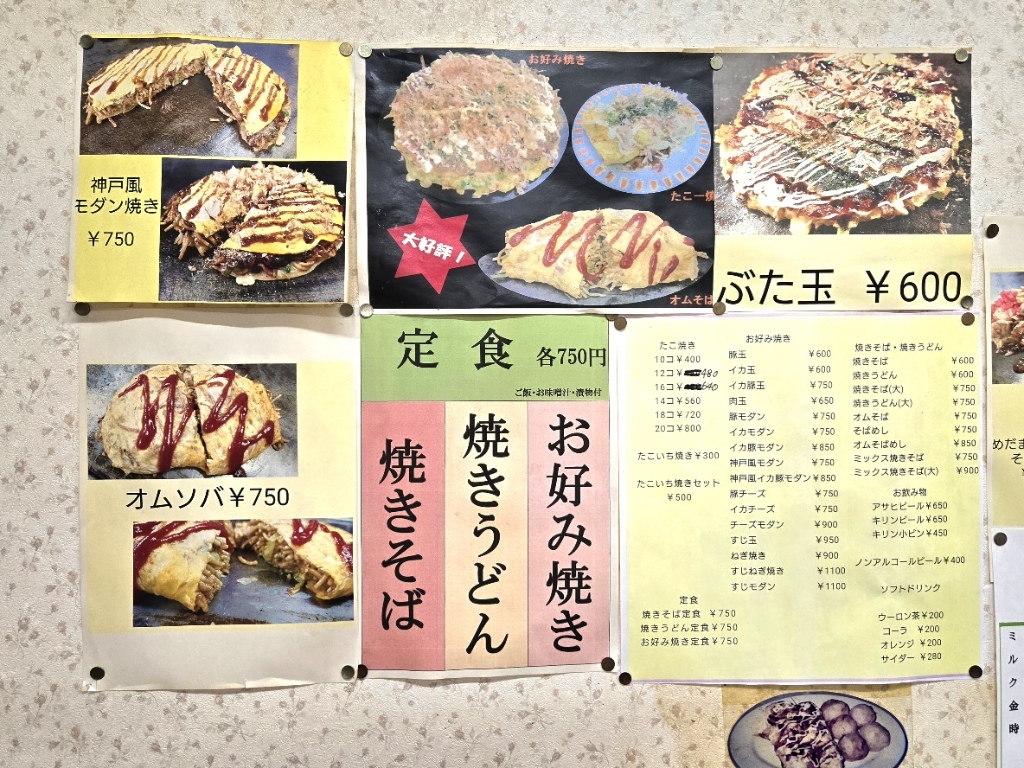 神戸風
モダン焼き
￥750
お好み焼き
たこ一焼
大好評！
オムそば
ぶた玉 ￥600
オムソバ￥750
定食 各750円
ご飯・お味噌汁・漬物付
お好み焼き
焼きうどん
焼きそば
たこ焼き
10コ￥400
12コ 480
16コ 640
14コ￥560
18コ￥720
20コ￥800
たこいち焼き￥300
たこいち焼きセット
￥500
お好み焼き
豚玉 ￥600
イカ玉 ￥600
イカ豚玉 ￥750
肉玉 ￥650
豚モダン ￥750
イカモダン ￥750
イカ豚モダン ￥850
神戸風モダン ￥750
神戸風イカ豚モダン￥850
豚チーズ ￥750
イカチーズ ￥750
チーズモダン ￥900
すじ玉 ￥950
ねぎ焼き ￥900
すじねぎ焼き ￥1100
すじモダン ￥1100
定食
焼きそば定食 ￥750
焼きうどん定食￥750
お好み焼き定食￥750
焼きそば・焼きうどん
焼きそば ￥600
焼きうどん ￥600
焼きそば(大) ￥750
焼きうどん(大) ￥750
オムそば ￥750
そばめし ￥750
オムそばめし ￥850
ミックス焼きそば ￥750
ミックス焼きそば(大) ￥900
お飲み物
アサヒビール￥650
キリンビール￥650
キリン小ビン￥450
ノンアルコールビール￥400
ソフトドリンク
ウーロン茶￥200
コーラ ￥200
オレンジ ￥200
サイダー ￥280
めだま
そ
ミルク金時